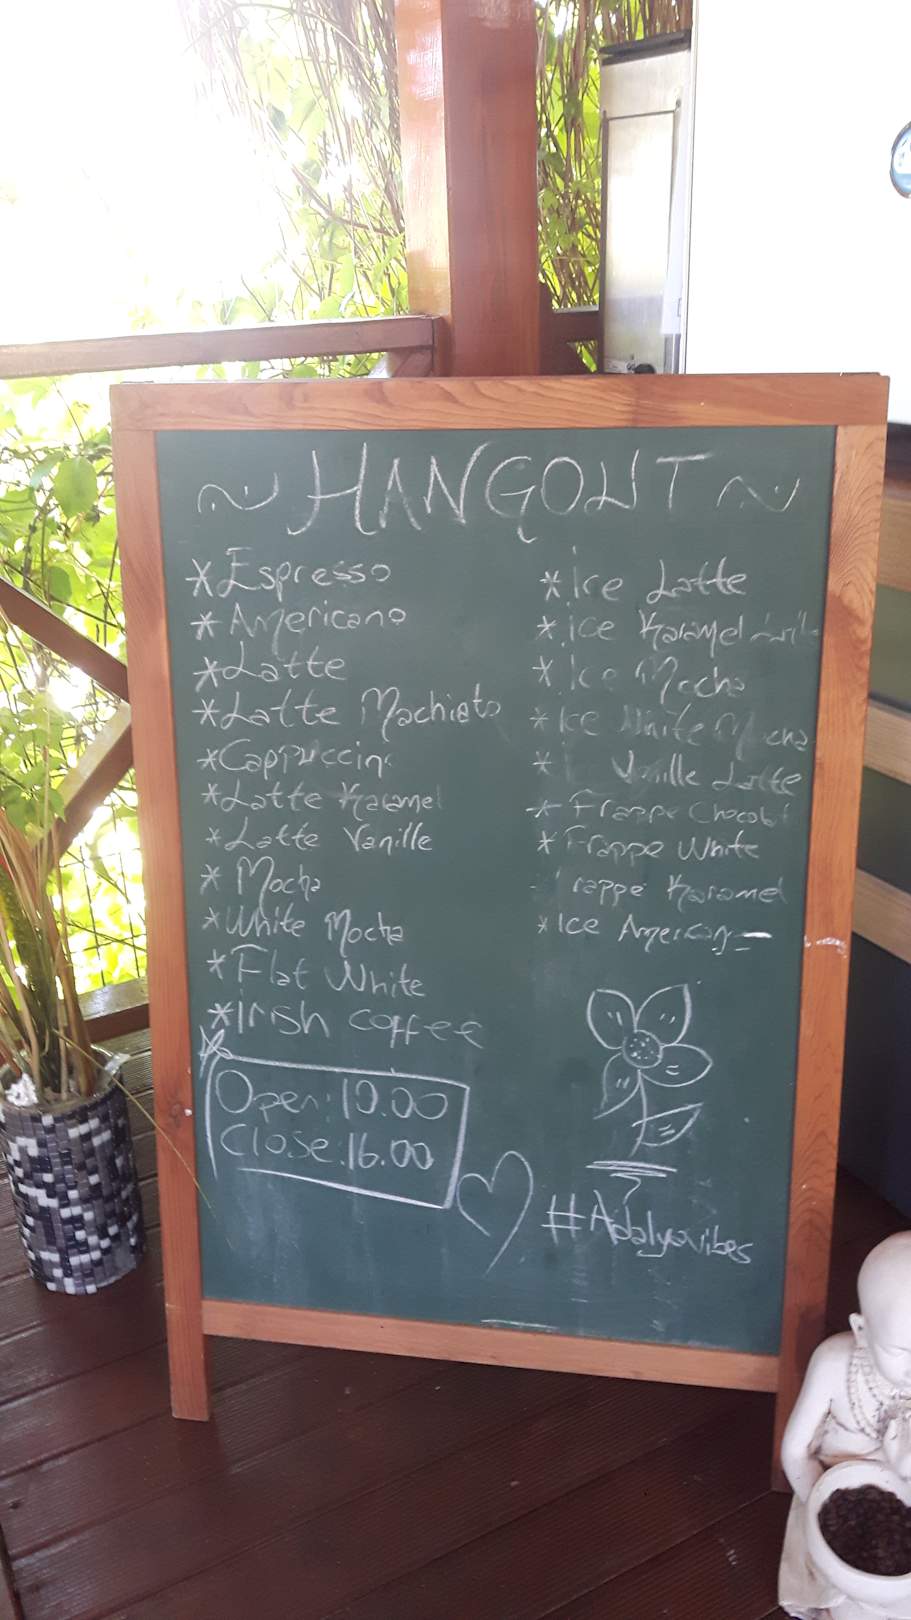 ~ HANGOUT ~
* Espresso
* Americano
* Latte
* Latte Machiato
* Cappuccin
* Latte Karamel
* Latte Vanille
* Mocha
* White Mocha
* Flat White
* Irish coffee
Open: 10.00
Close: 16.00
* ice Latte
* ice Karamel
* Ice Mocha
* Ice White Mocha
* Vanille Latte
* Frappe Chocolat
* Frappe White
rappe Karamel
* Ice American
#Adalyavibes